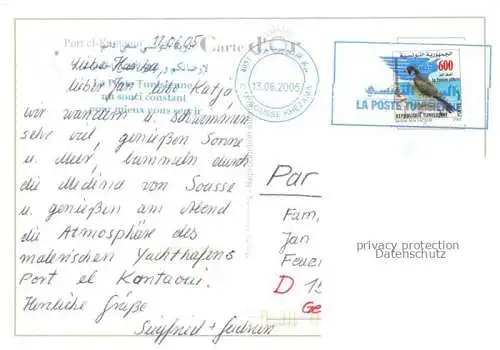 Port el-Kantaoui
Carte d'Or
11.06.05
Liebe Hanka,
lieber Jan, liebe Katja,
wir wandern u. schwimmen
sehr viel, genießen Sonne
u. Meer, bummeln durch
die Medina von Sousse
u. genießen am Abend
die Atmosphäre des
malerischen Yachthafens
Port el Kantaoui.
Herzliche Grüße
Siegfried +
La Poste Tunisienne
un souci constant
pour mieux vous servir
13.06.2005
SOUSSE
الجمهورية التونسية
600
LA POSTE TUNISIENNE
REPUBLIQUE TUNISIENNE
Par
Fam.
Jan
Feuer
D 15
Ge
privacy protection
Datenschutz